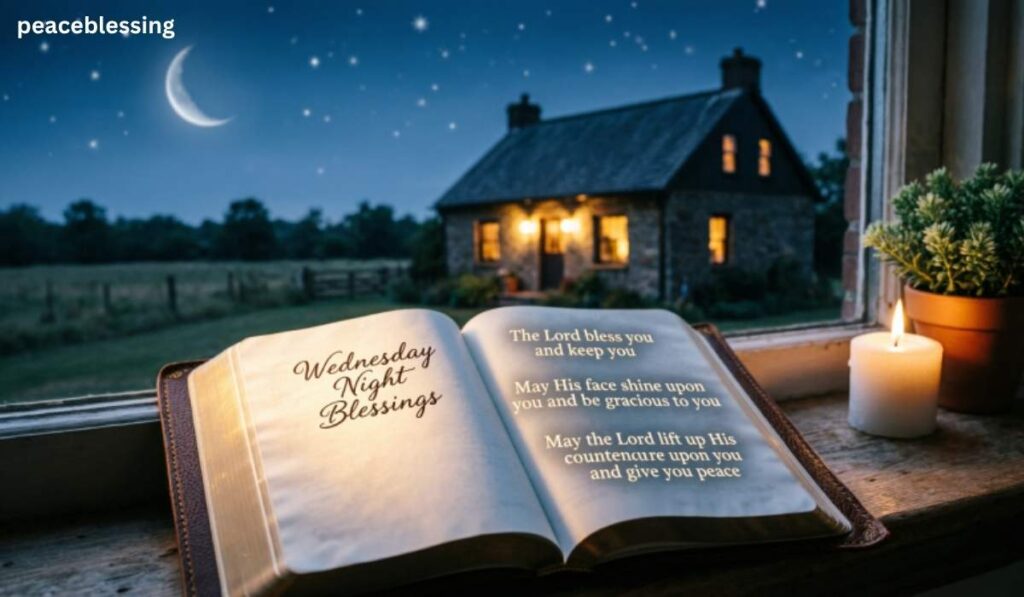 peaceblessing
Wednesday
Night
Blessings
The Lord bless you
and keep you
May His face shine upon
you and be gracious to you
May the Lord lift up His
countencure upon you
and give you peace